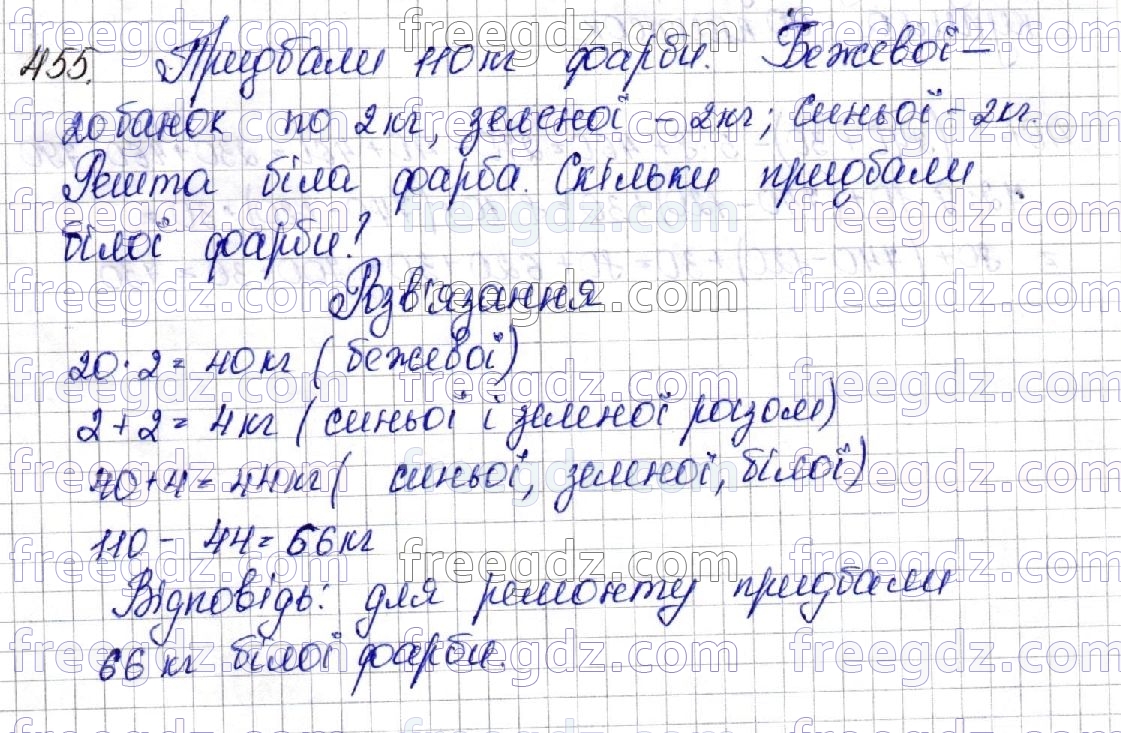 455. Придбали 110 кг фарби. Бежевої -
20 банок по 2 кг, зеленої - 2 кг; синьої - 2 кг.
Решта біла фарба. Скільки придбали
білої фарби?
Розв'язання
20 · 2 = 40 кг (бежевої)
2 + 2 = 4 кг (синьої і зеленої разом)
40 + 4 = 44 кг (синьої, зеленої, білої)
110 - 44 = 66 кг
Відповідь: для ремонту придбали
66 кг білої фарби.